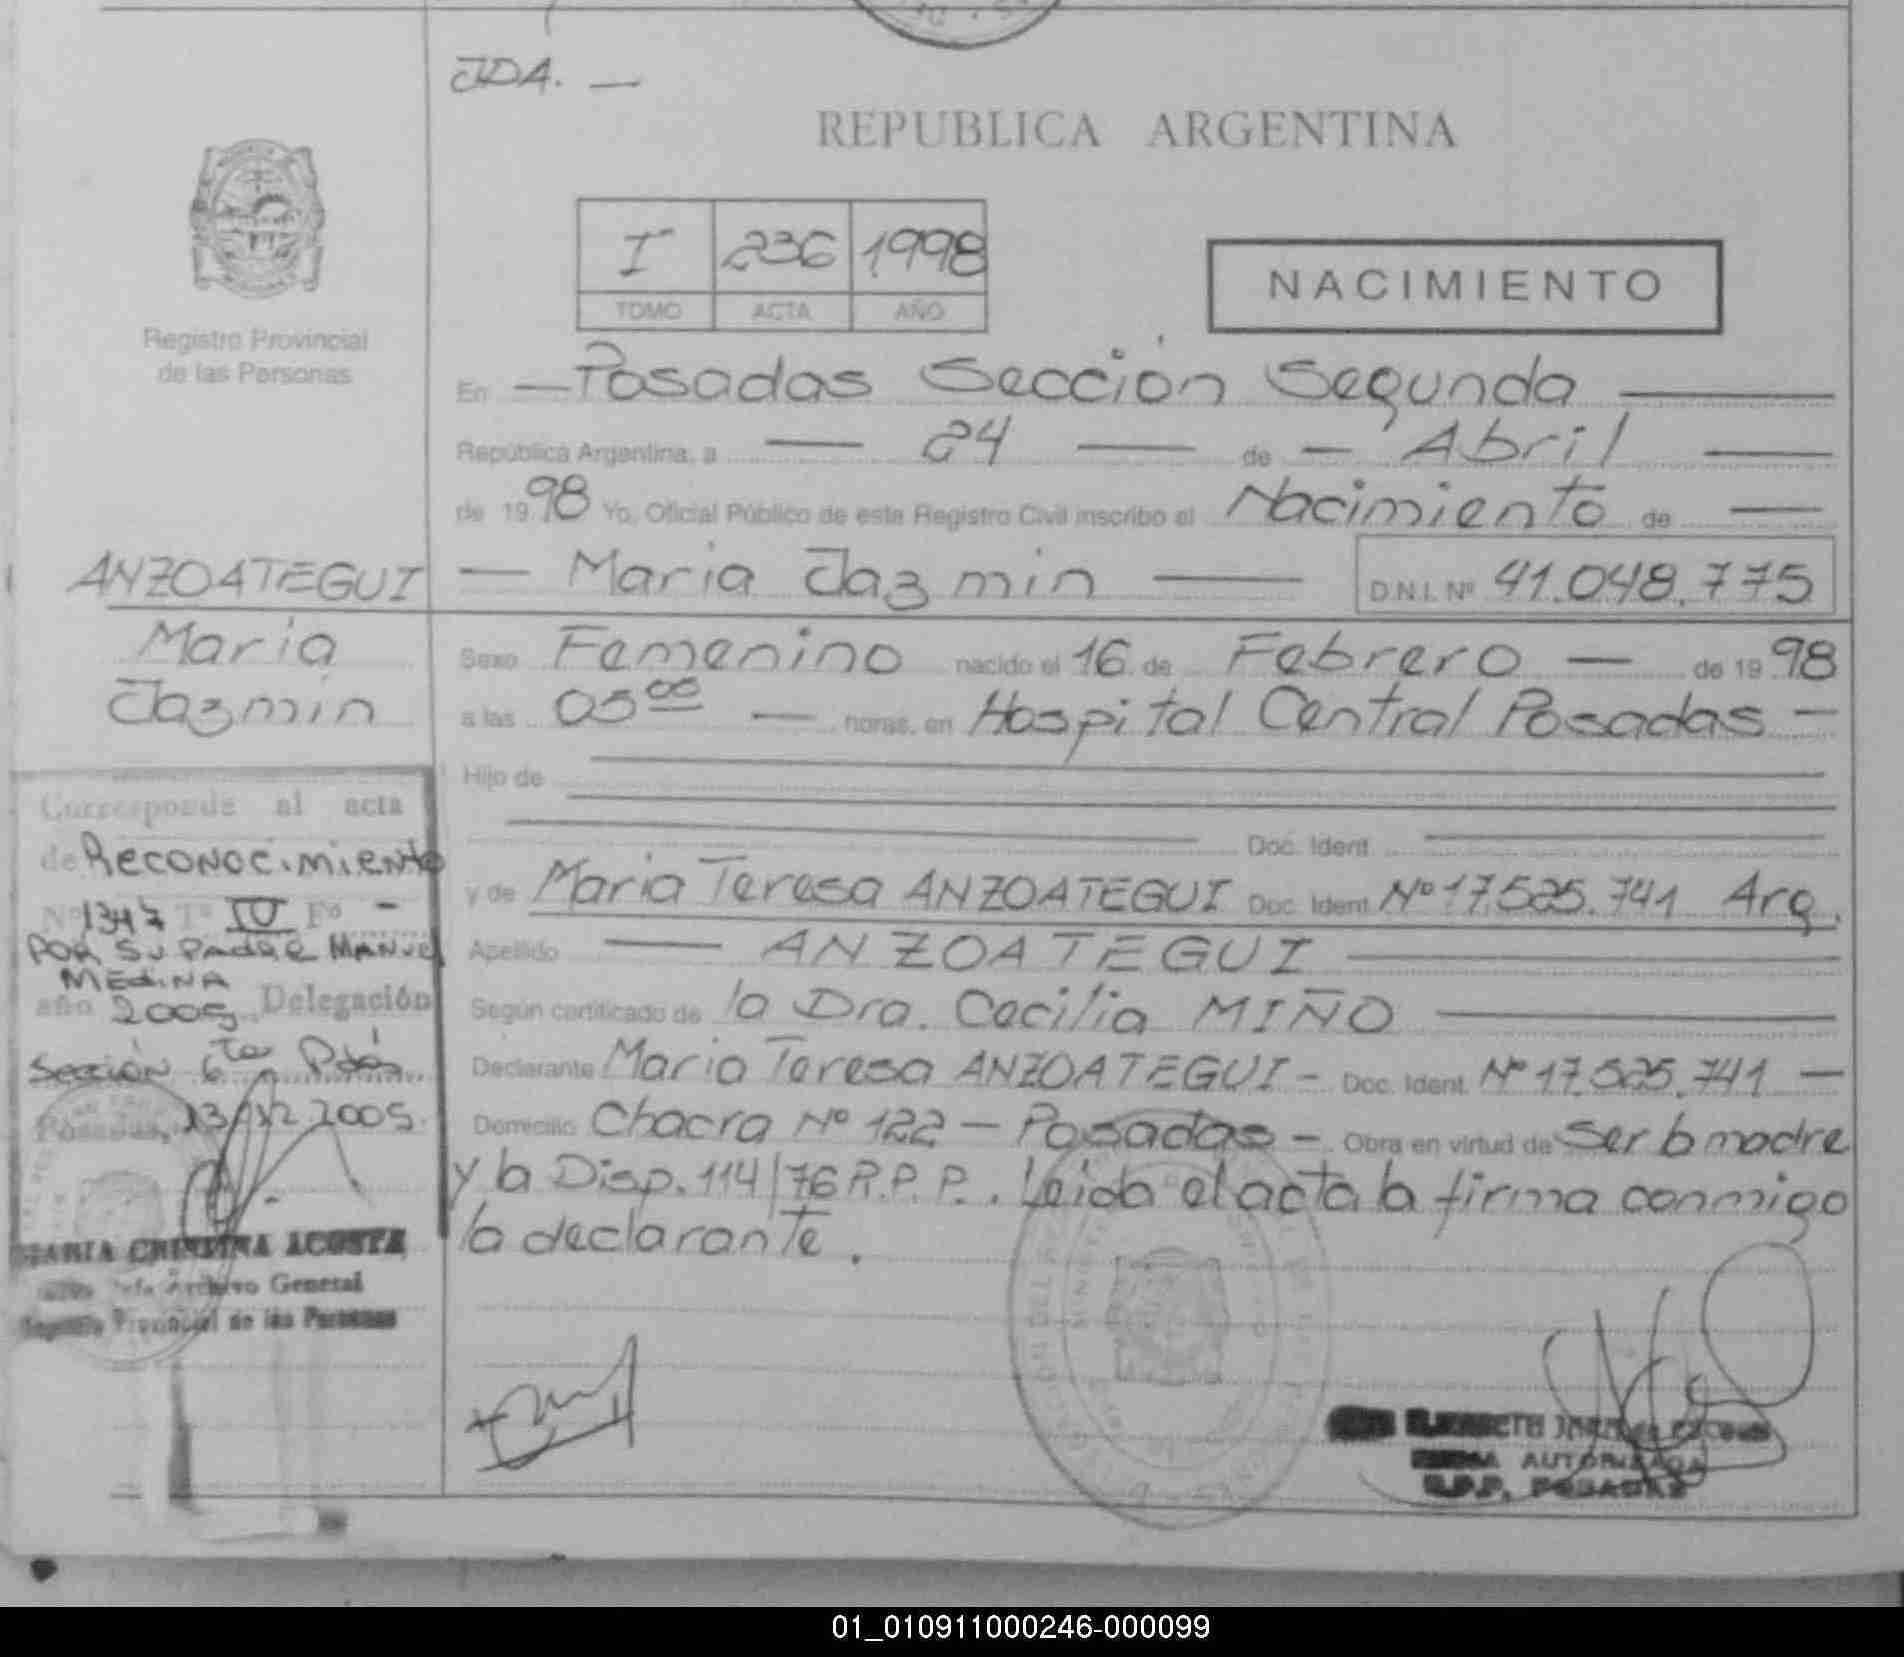 JDA. —
REPUBLICA ARGENTINA
I 236 1998
TOMO ACTA AÑO
NACIMIENTO
Registro Provincial
de las Personas
En — Posadas Sección Segunda —
República Argentina, a — 24 — de — Abril —
de 1998 Yo, Oficial Público de este Registro Civil inscribo el Nacimiento de —
— Maria Jazmin — D.N.I. Nº 41.048.775
ANZOATEGUI
Maria
Jazmin
Sexo Femenino nacido el 16 de Febrero — de 1998
a las 05⁰⁰ — horas, en Hospital Central Posadas —
Hijo de
Doc. Ident.
y de Maria Teresa ANZOATEGUI Doc. Ident. Nº 17.525.741 Arg.
Apellido — ANZOATEGUI —
Según certificado de la Dra. Cecilia MIÑO —
Declarante Maria Teresa ANZOATEGUI - Doc. Ident. Nº 17.525.741 —
Domicilio Chacra Nº 122 — Posadas — Obra en virtud de Ser la madre
y la Disp. 114/76 R.P.P.. Leida el acta la firma conmigo
la declarante.
Corresponde al acta
de Reconocimiento
Nº 1347 Tº IV Fº -
POR SU PADRE MANUEL
MEDINA
año 2005 Delegación
Sección 6ta Pdas
Posadas, 13/12 2005
MARIA CRISTINA ACOSTA
Archivo General
Registro Provincial de las Personas
ELIZABETH
FIRMA AUTORIZADA
R.P.P. POSADAS
01_010911000246-000099